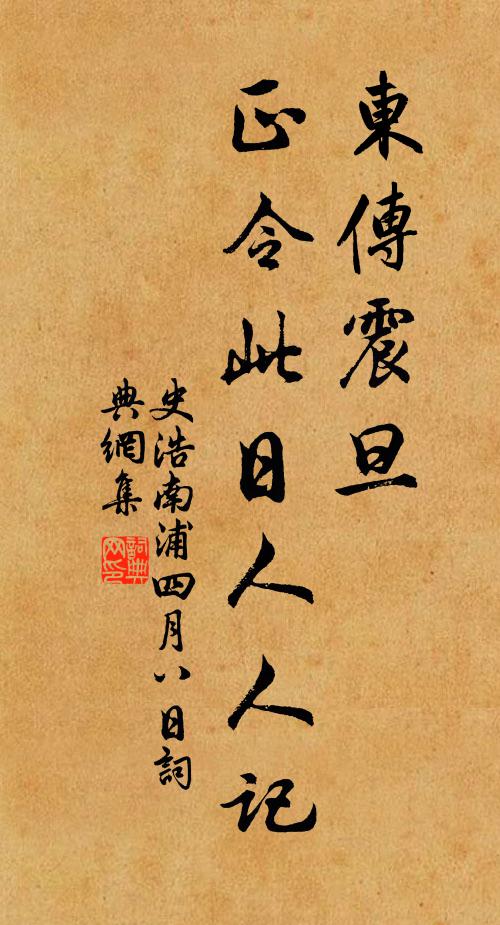 東傳震旦
正令此日人人記
史浩南浦四月八日詞
典網集
詞典
网印